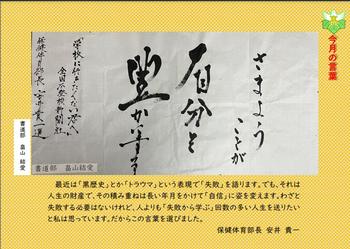 今月の言葉
さまよう
ことが
自分を
豊かにする
学校に行きたくない君へ
全国不登校新聞社
保健体育部長 安井貴一 選
書道部 畠山 結愛
書道部 畠山 結愛
最近は「黒歴史」とか「トラウマ」という表現で「失敗」を語ります。でも、それは
人生の財産で、その積み重ねは長い年月をかけて「自信」に姿を変えます。わざと
失敗する必要はないけれど、人よりも「失敗から学ぶ」回数の多い人生を送りたい
と私は思っています。だからこの言葉を選びました。
保健体育部長 安井 貴一